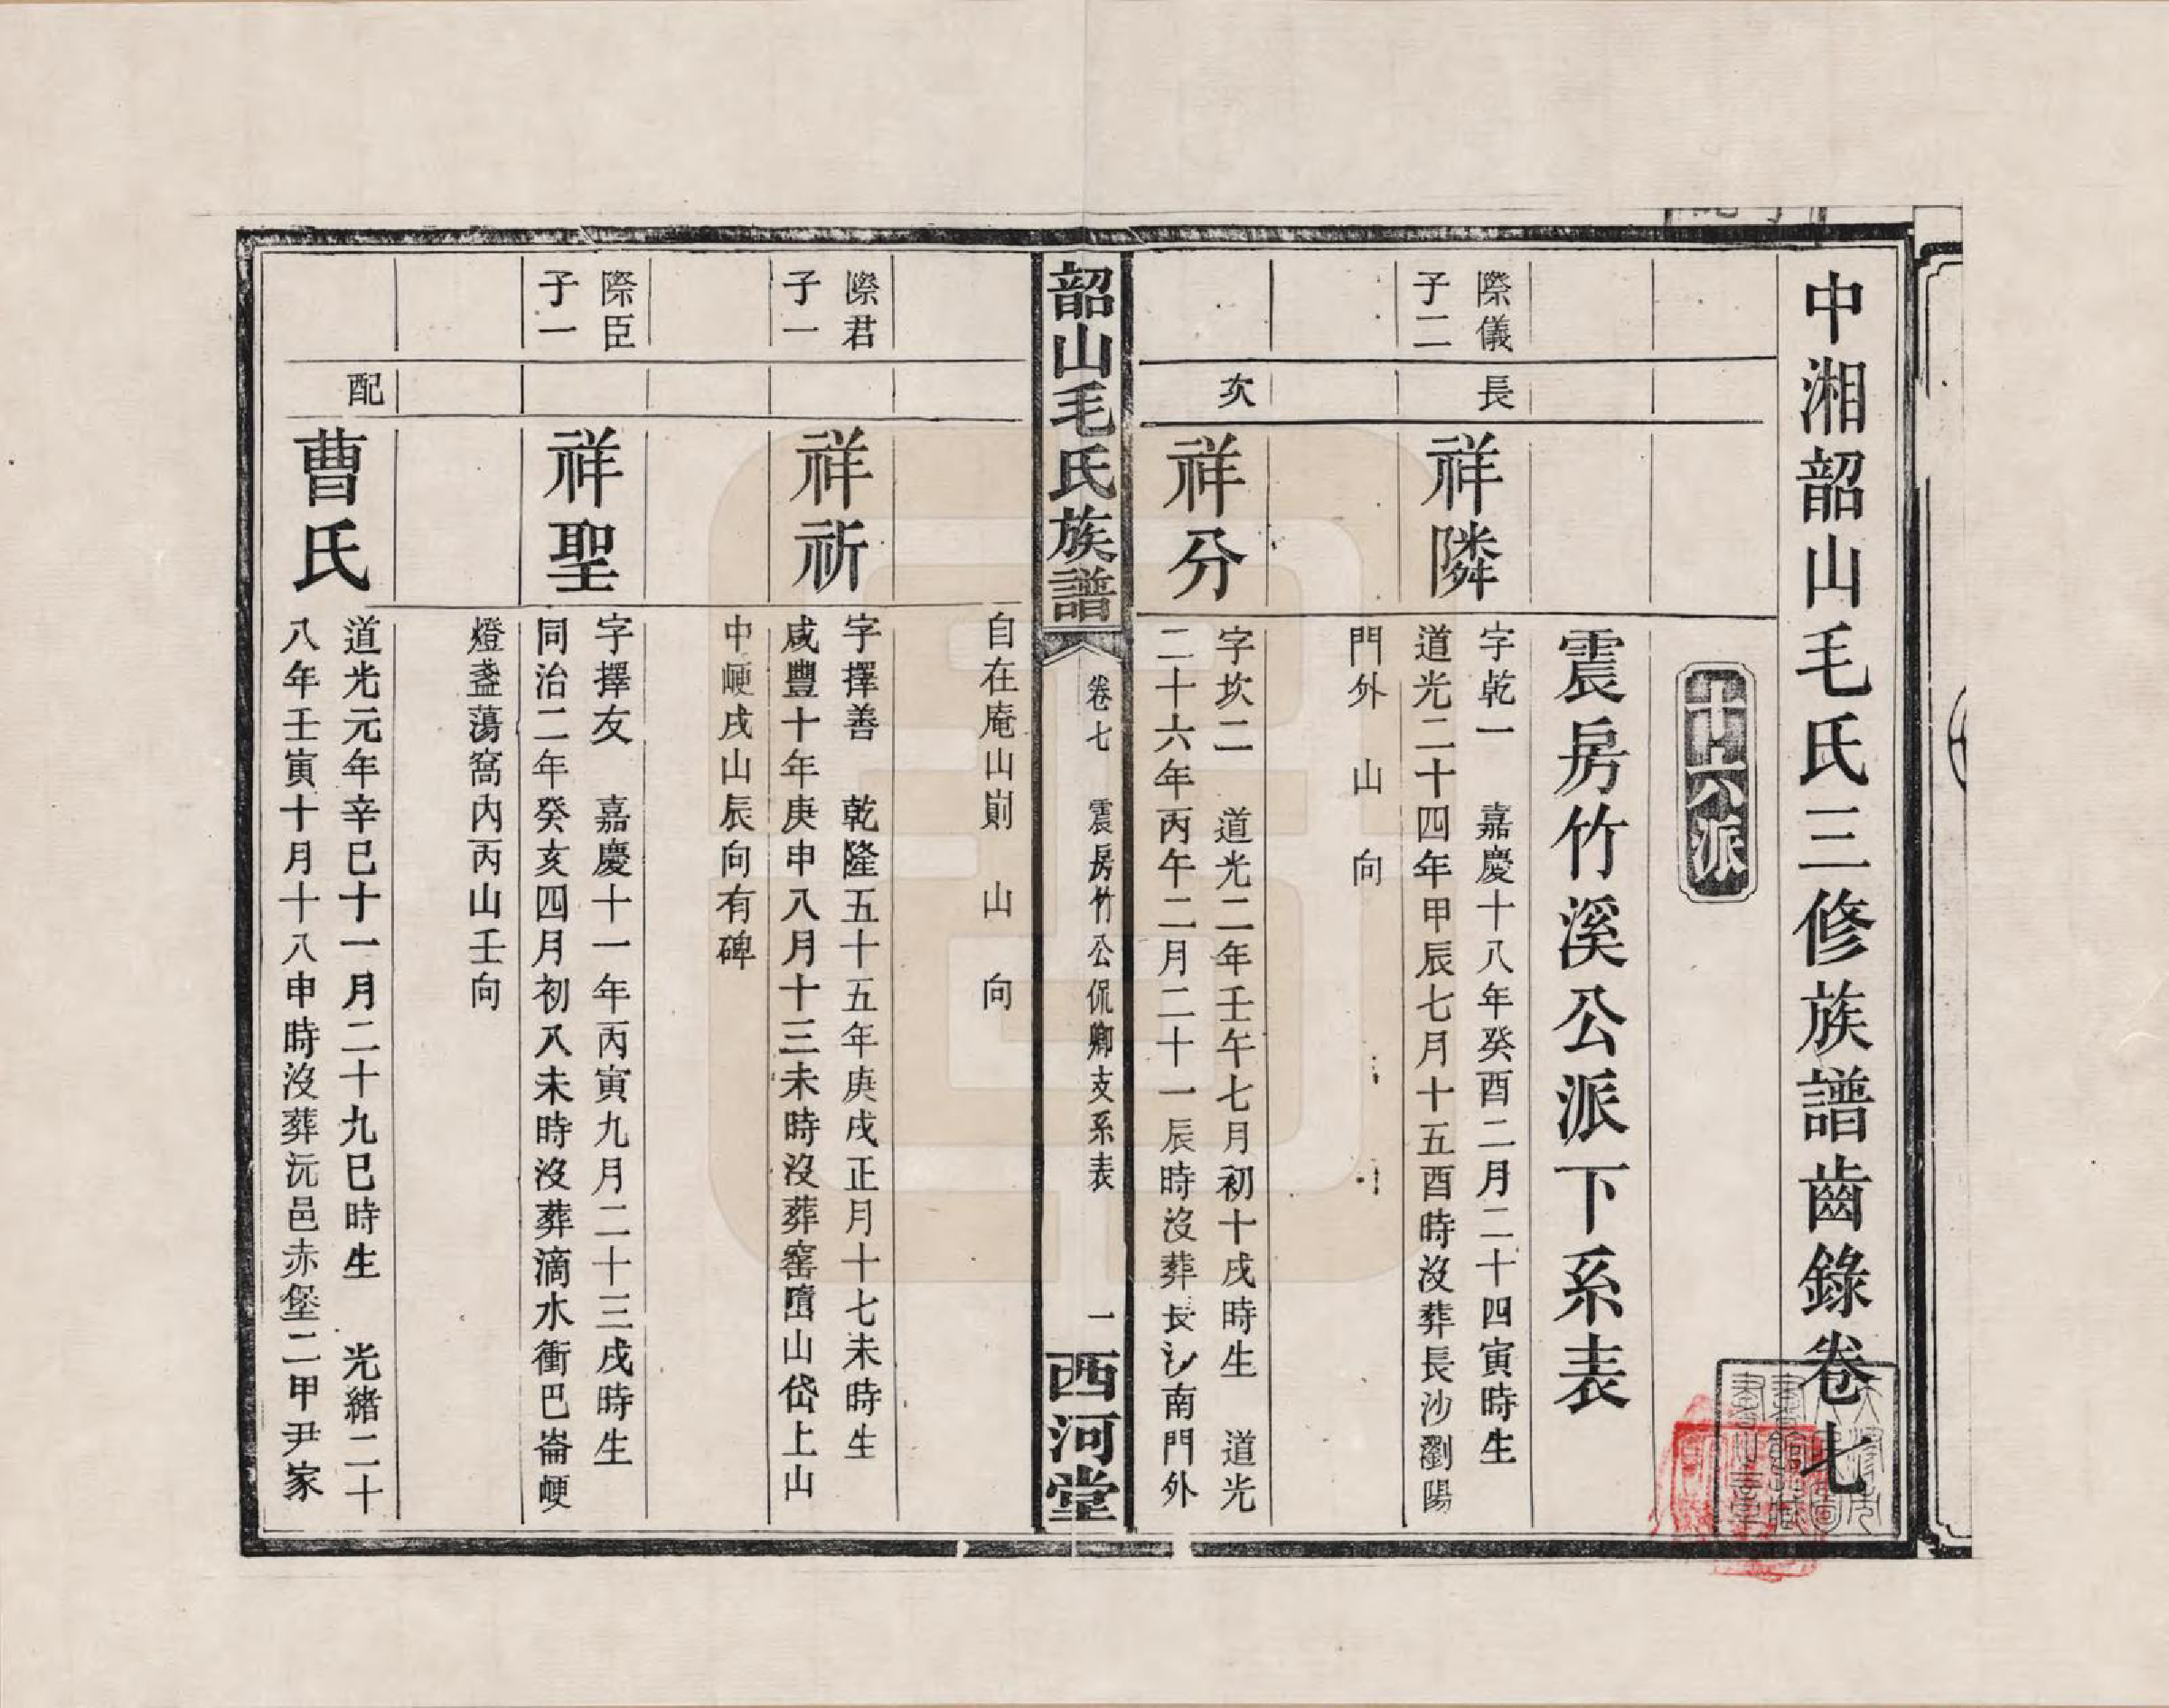 中湘韶山毛氏三修族譜齒錄卷七
十六派
震房竹溪公派下系表
際儀
子二
長
祥隣
字乾一　嘉慶十八年癸酉二月二十四寅時生
道光二十四年甲辰七月十五酉時沒葬長沙瀏陽
門外　山　向
次
祥分
字坎二　道光二年壬午七月初十戌時生　道光
二十六年丙午二月二十一辰時沒葬長沙南門外
韶山毛氏族譜
卷七　震房竹公侃卿支系表　一
西河堂
自在庵山則　山　向
際君
子一
祥祈
字擇善　乾隆五十五年庚戌正月十七未時生
咸豐十年庚申八月十三未時沒葬窰山岱上山
中峺戌山辰向有碑
際臣
子一
祥聖
字擇友　嘉慶十一年丙寅九月二十三戌時生
同治二年癸亥四月初八未時沒葬滴水衝巴崙峺
燈盞蕩窩內丙山壬向
配
曹氏
道光元年辛巳十一月二十九巳時生　光緒二十
八年壬寅十月十八申時沒葬沅邑赤堡二甲尹家